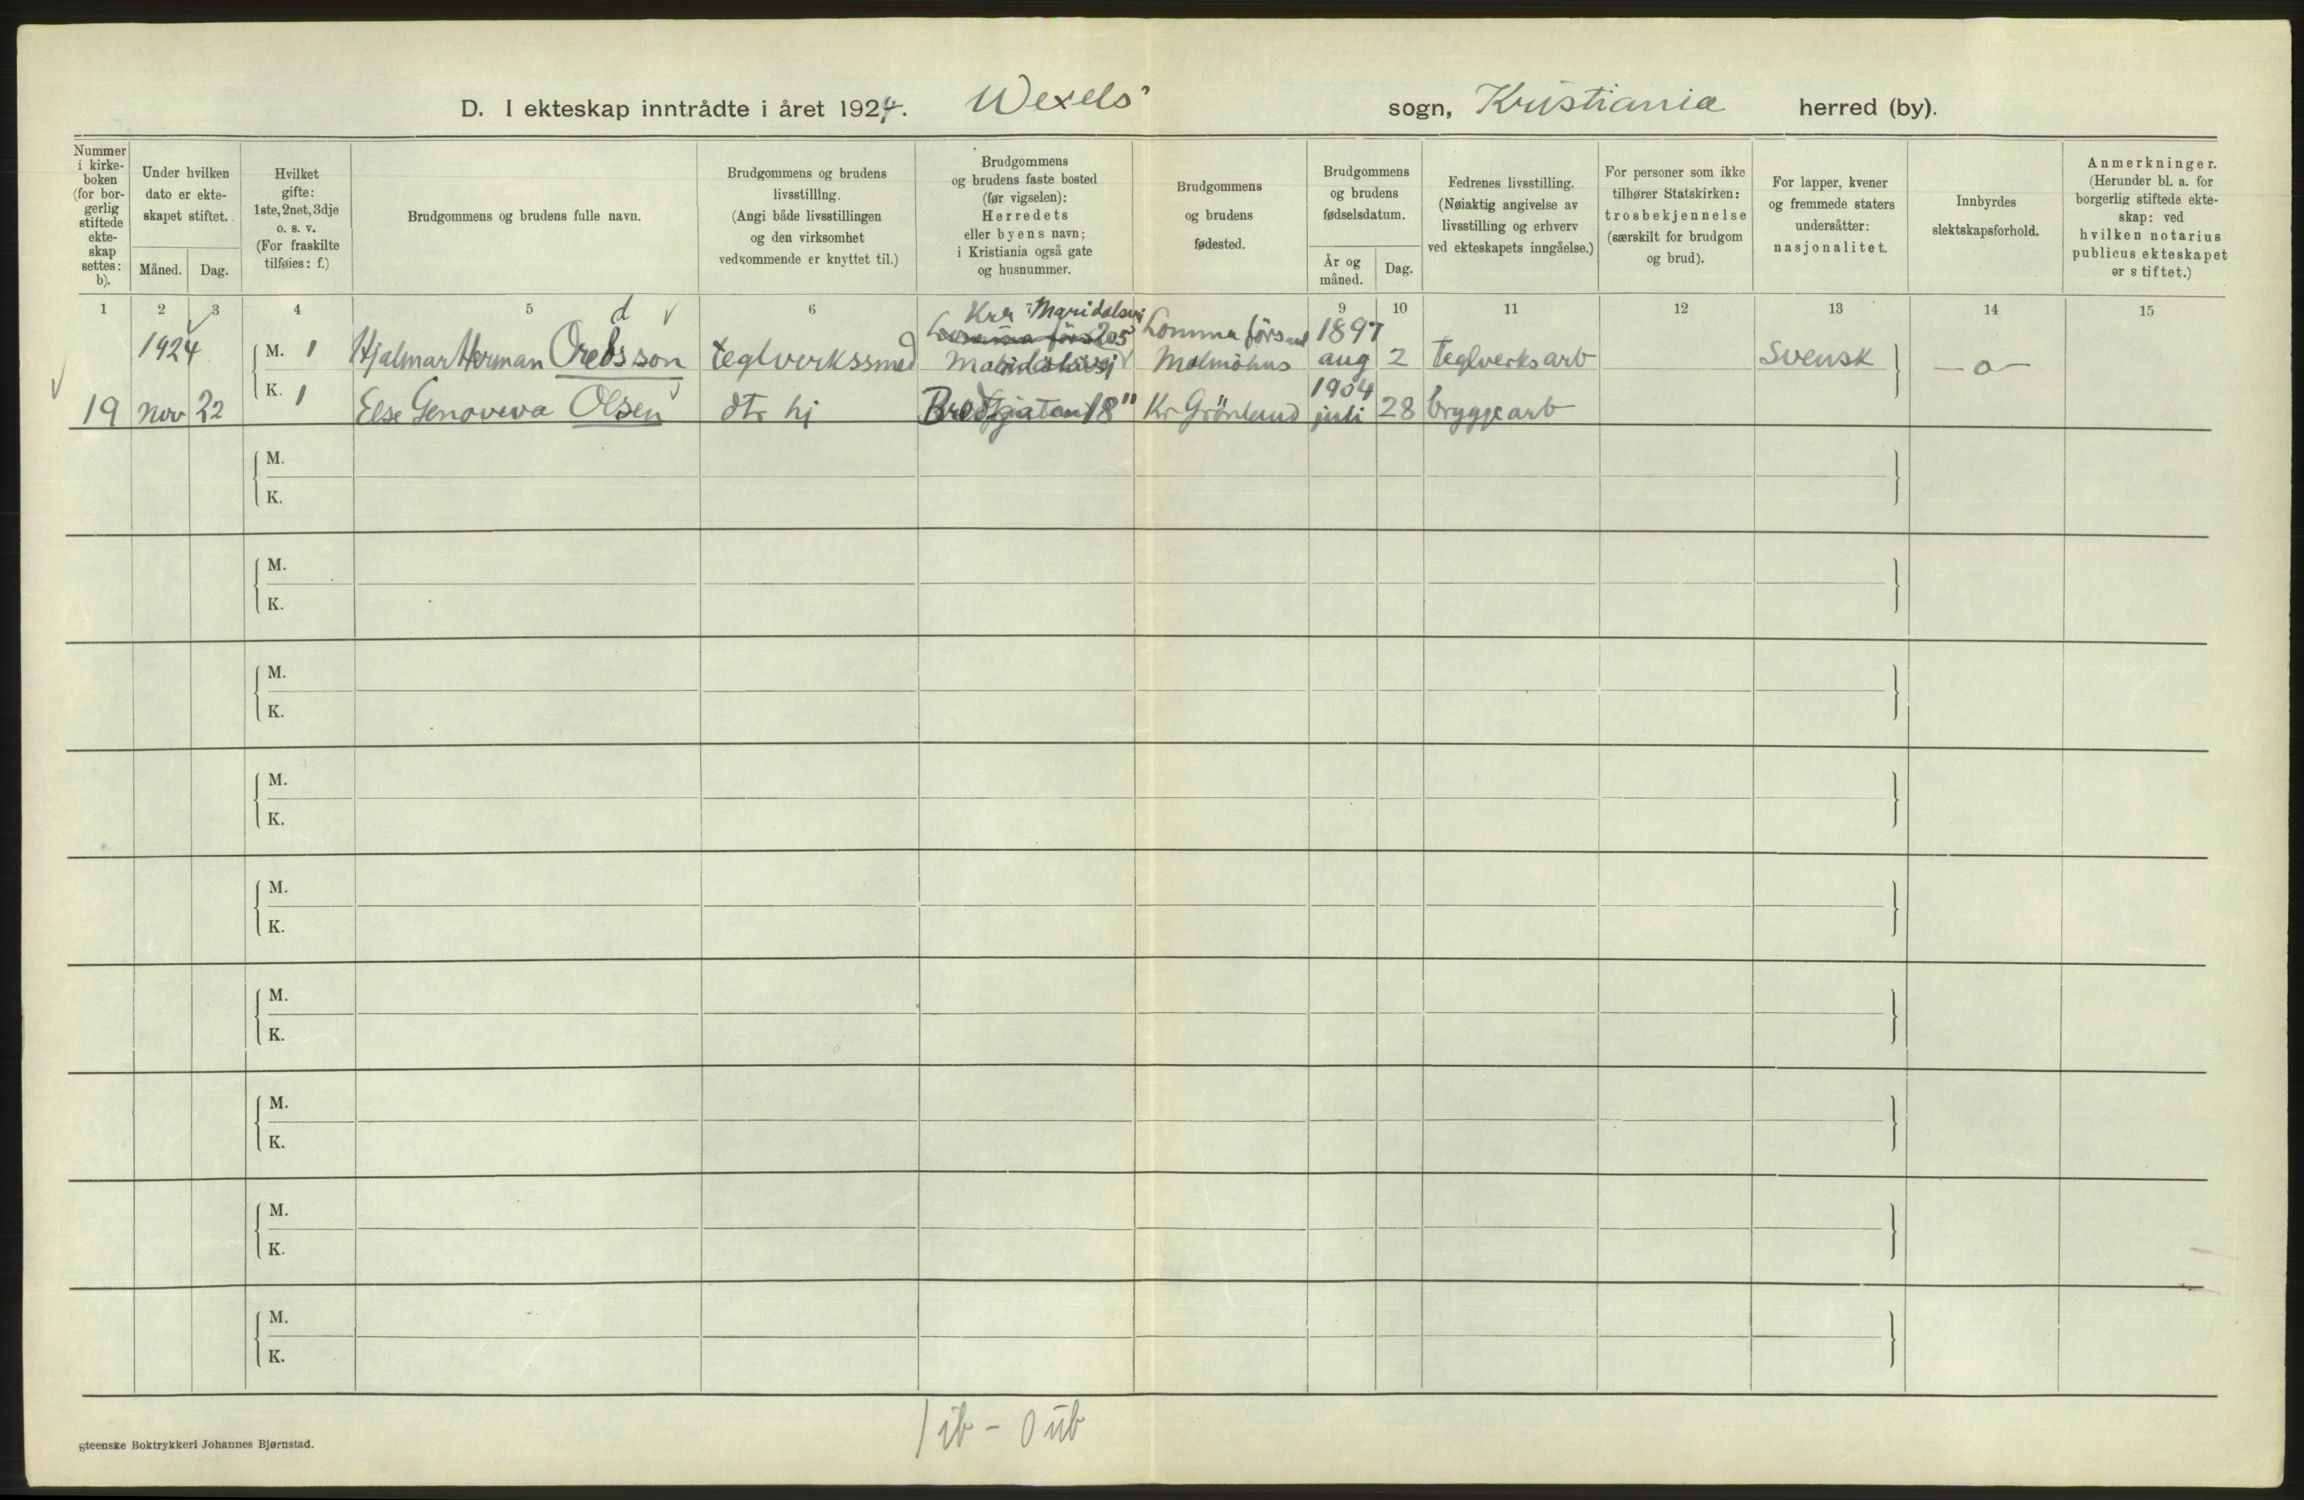 D. I ekteskap inntrådte i året 1924. Wexels' sogn, Kristiania herred (by).
Nummer i kirke-boken (for bor-gerlig stiftede ekte-skap settes: b).
Under hvilken dato er ekte-skapet stiftet.
Måned. Dag.
Hvilket gifte: 1ste, 2net, 3dje o. s. v. (For fraskilte tilføies: f.)
Brudgommens og brudens fulle navn.
Brudgommens og brudens livsstilling. (Angi både livsstillingen og den virksomhet vedkommende er knyttet til.)
Brudgommens og brudens faste bosted (før vigselen): Herredets eller byens navn; i Kristiania også gate og husnummer.
Brudgommens og brudens fødested.
Brudgommens og brudens fødselsdatum.
År og måned. Dag.
Fedrenes livsstilling. (Nøiaktig angivelse av livsstilling og erhverv ved ekteskapets inngåelse.)
For personer som ikke tilhører Statskirken: trosbekjennelse (særskilt for brudgom og brud).
For lapper, kvener og fremmede staters undersåtter: nasjonalitet.
Innbyrdes slektskapsforhold.
Anmerkninger. (Herunder bl. a. for borgerlig stiftede ekte-skap: ved hvilken notarius publicus ekteskapet er stiftet.)
1 2 3 4 5 6 9 10 11 12 13 14 15
d
Krr Maridalsvei
1924 205 Lomma förs 1897
M. 1 Hjalmar Herman Oredsson teglverkssmed Malmöhus aug 2 teglverksarb svensk —o—
1904
19 nov 22 K. 1 Else Genoveva Olsen dtr hj Bredgaten 18" Kr Grönland juli 28 bryggearb
M.
K.
M.
K.
M.
K.
M.
K.
M.
K.
M.
K.
M.
K.
M.
K.
M.
K.
1 ib – 0 ub
steenske Boktrykkeri Johannes Bjørnstad.